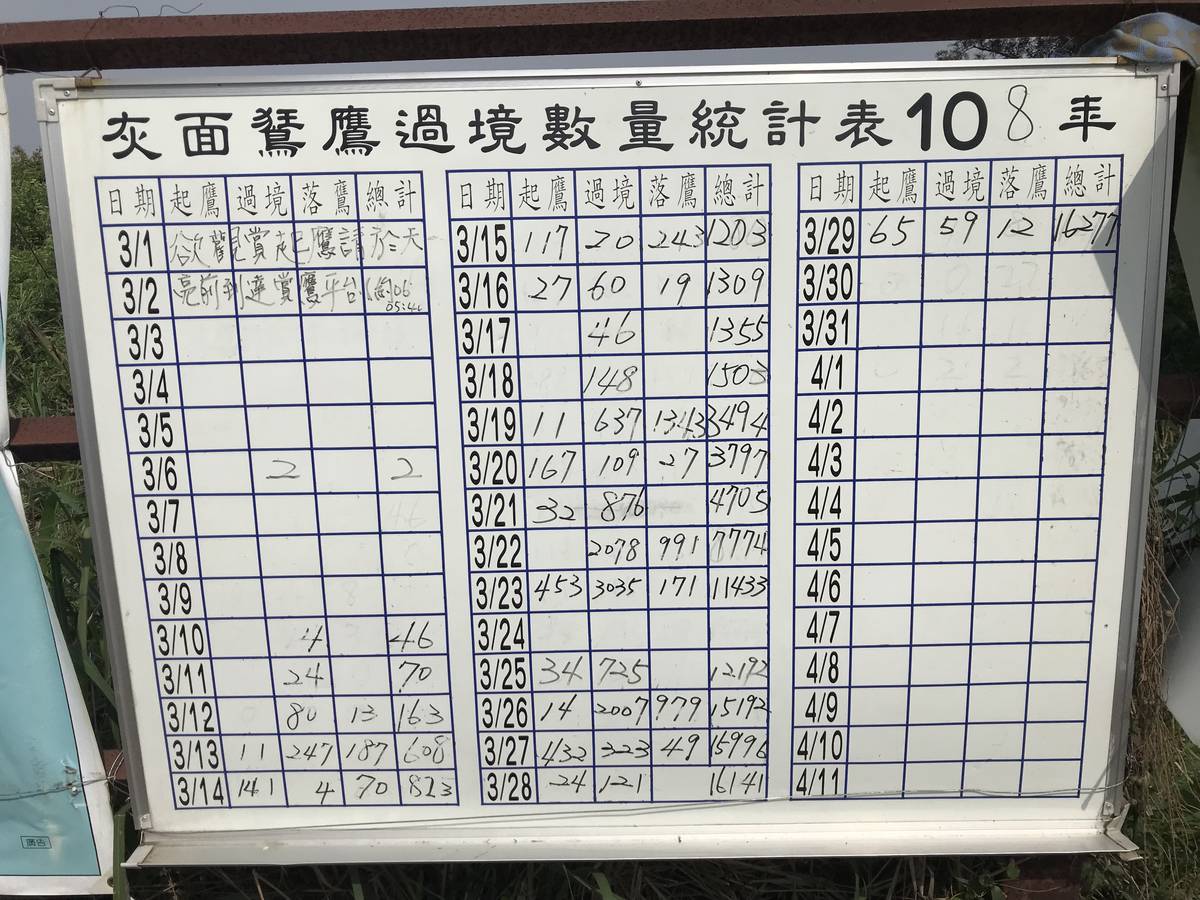 灰面鵟鷹過境數量統計表108年
日期 起鷹 過境 落鷹 總計
3/1 欲觀見賞起鷹請於天
3/2 亮前到達賞鷹平台(約05
05:4
3/3
3/4
3/5
3/6 2 2
3/7
3/8
3/9
3/10 4 46
3/11 24 70
3/12 80 13 163
3/13 11 247 187 608
3/14 141 4 70 823
日期 起鷹 過境 落鷹 總計
3/15 117 20 243 1203
3/16 27 60 19 1309
3/17 46 1355
3/18 148 1503
3/19 11 637 1343 3494
3/20 167 109 27 3797
3/21 32 876 4705
3/22 2078 991 7774
3/23 453 3035 171 11433
3/24
3/25 34 725 12192
3/26 14 2007 979 15192
3/27 432 323 49 15996
3/28 24 121 16141
日期 起鷹 過境 落鷹 總計
3/29 65 59 12 16277
3/30
3/31
4/1
4/2
4/3
4/4
4/5
4/6
4/7
4/8
4/9
4/10
4/11
廣告